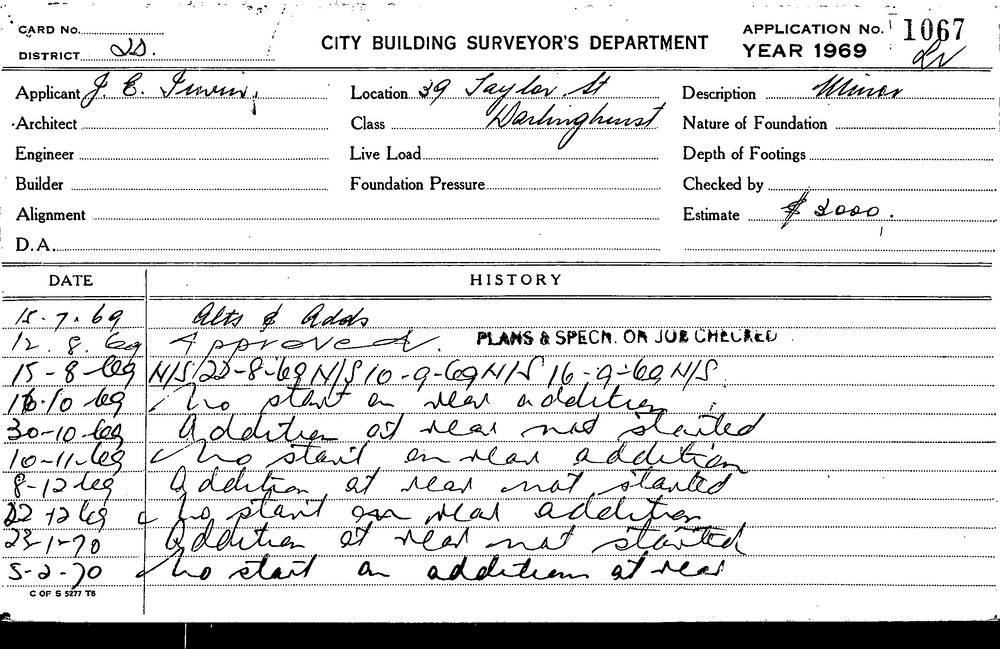 CARD No. CITY BUILDING SURVEYOR'S DEPARTMENT APPLICATION No. 1067
DISTRICT YEAR 1969
Applicant J. E. Irwin Location 39 Taylor St Description Minor
Architect Class Darlinghurst Nature of Foundation
Engineer Live Load Depth of Footings
Builder Foundation Pressure Checked by
Alignment Estimate $ 3000.
D.A.
DATE HISTORY
15.7.69 Alts & Adds
12.8.69 Approved. PLANS & SPECN. ON JOB CHECKED
15-8-69 N/S 22-8-69 N/S 10-9-69 N/S 16-9-69 N/S
16.10 69 No start on rear addition
30-10-69 Addition at rear not started
10-11-69 No start on rear addition
8-12 69 Addition at rear not started
22 12 69 No start on rear addition
23-1-70 Addition at rear not started
5-2-70 No start on addition at rear
C OF S 5277 T6